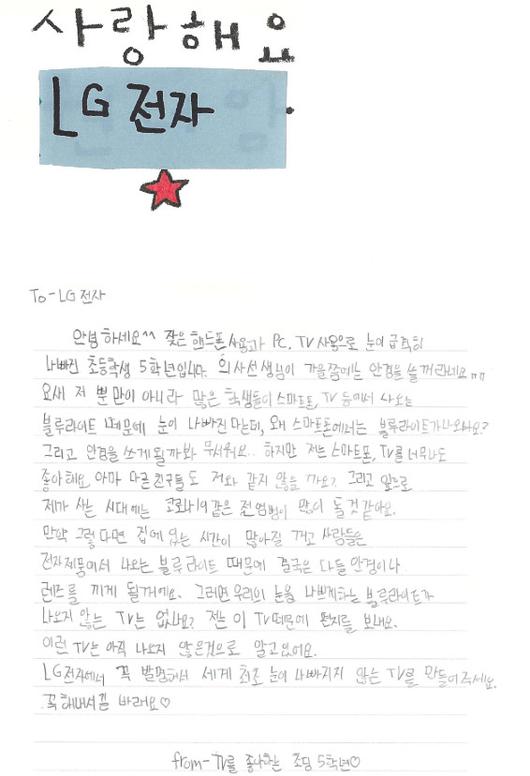 사랑해요
LG 전자
To - LG 전자
안녕하세요^^ 잦은 핸드폰 사용과 PC, TV 사용으로 눈이 급격히
나빠진 초등학생 5학년입니다. 의사선생님이 가을쯤에는 안경을 쓸꺼라네요ㅠㅠ
요새 저 뿐만이 아니라 많은 학생들이 스마트폰, TV 등에서 나오는
블루라이트 때문에 눈이 나빠진다는데, 왜 스마트폰에서는 블루라이트가 나오나요?
그리고 안경을 쓰게 될까봐 무서워요.. 하지만 저는 스마트폰, TV를 너무나도
좋아해요. 아마 다른 친구들도 저와 같지 않을까요? 그리고 앞으로
제가 사는 시대에는 코로나19같은 전염병이 많이 돌것 같아요.
만약 그렇다면 집에 있는 시간이 많아질 꺼고 사람들은
전자제품에서 나오는 블루라이트 때문에 결국은 다들 안경이나
렌즈를 끼게 될거에요. 그러면 우리의 눈을 나쁘게하는 블루라이트가
나오지 않는 TV는 없나요? 저는 이 TV때문에 편지를 보내요.
이런 TV는 아직 나오지 않은것으로 알고있어요.
LG전자에서 꼭 발명해서 세계 최초 눈이 나빠지지 않는 TV를 만들어주세요.
꼭 해내시길 바래요♡
from - TV를 좋아하는 초딩 5학년♡